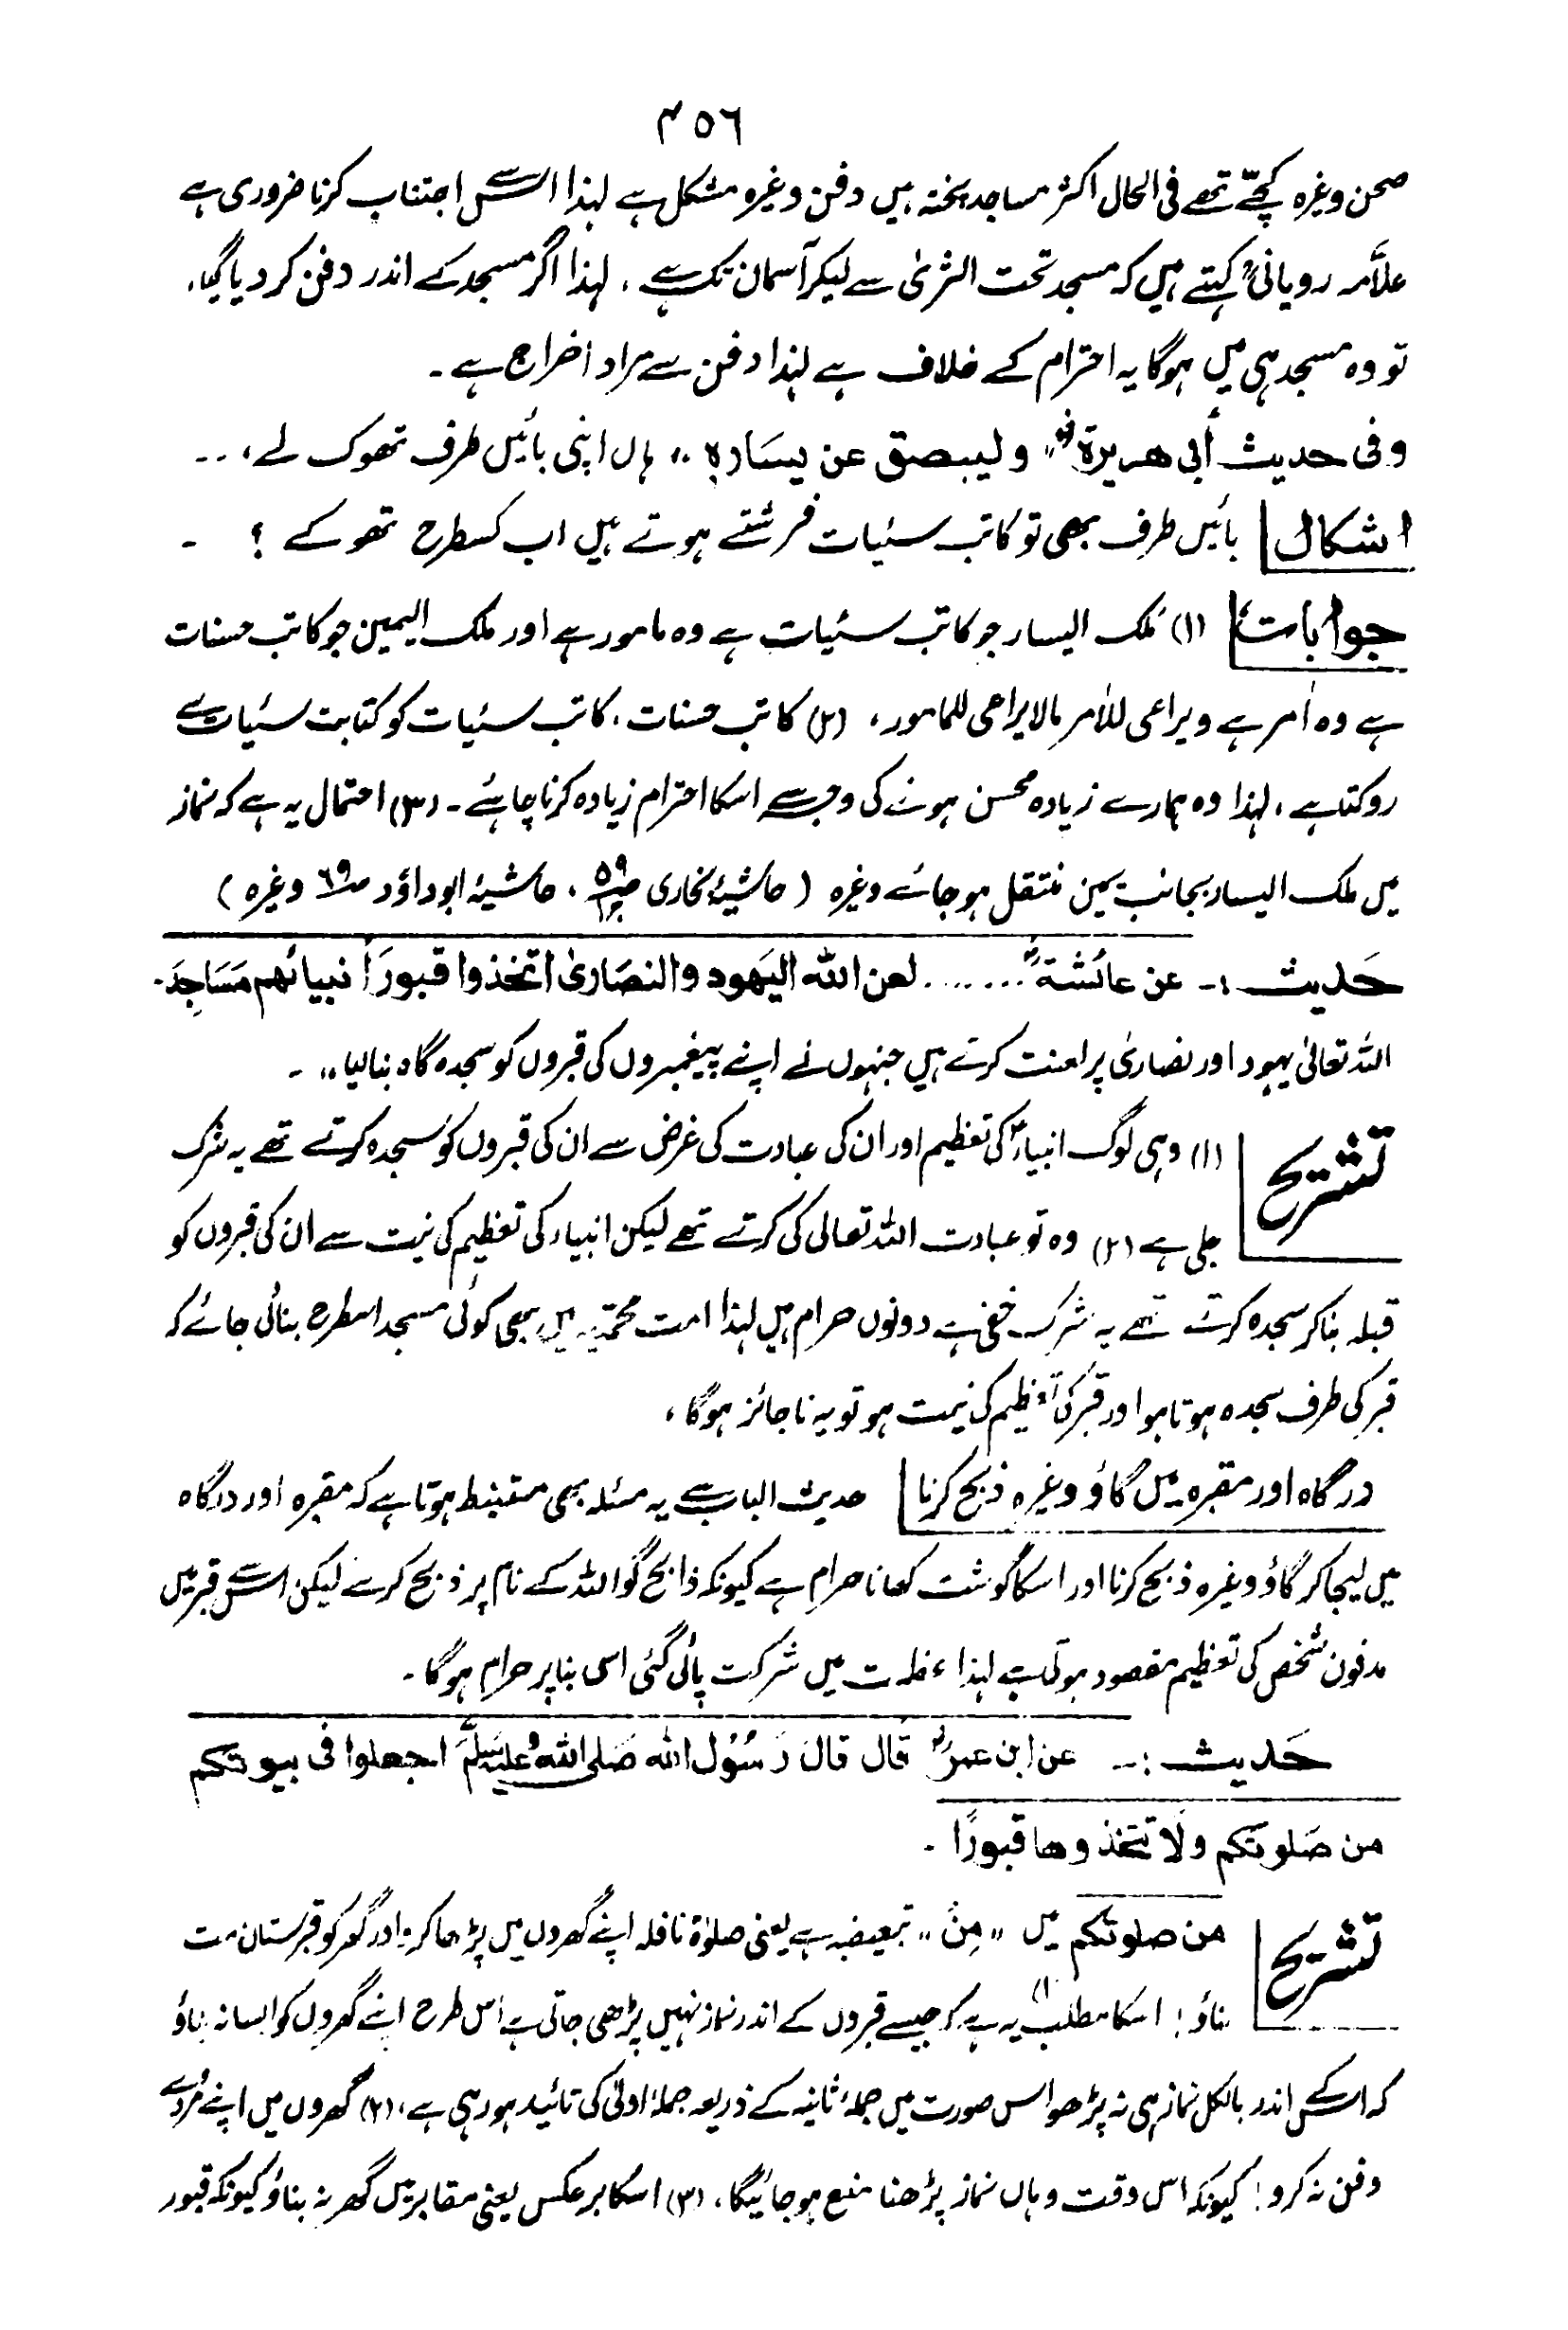 ۴۵٦
صحن وغیرہ کچّے تھے فی الحال اکثر مساجد پختہ ہیں دفن وغیرہ مشکل ہے لہذا اس سے اجتناب کرنا ضروری ہے
علاّمہ رویانیؒ کہتے ہیں کہ مسجد تحت الثریٰ سے لیکر آسمان تک ہے ، لہذا اگر مسجد کے اندر دفن کر دیا گیا،
تو وہ مسجد ہی میں ہوگا یہ احترام کے خلاف ہے لہذا دفن سے مراد اخراج ہے ۔
وفی حدیث أبی هریرةؓ " ولیبصق عن یسَارہٖ " ہاں اپنی بائیں طرف تھوک لے، ..
اشکال بائیں طرف بھی تو کاتب سئیات فرشتے ہوتے ہیں اب کسطرح تھوکے ؟ ۔
جوابات (۱) مَلک الیسار جو کاتب سئیات ہے وہ مامور ہے اور ملک الیمین جو کاتب حسنات
ہے وہ اٰمر ہے ویراعی للاٰمر مالایراعی للمامور ، (۲) کاتب حسنات ، کاتب سئیات کو کتابت سئیات سے
روکتا ہے ، لہذا وہ ہمارے زیادہ محسن ہونے کی وجہ سے اسکا احترام زیادہ کرنا چاہئے ۔ (۳) احتمال یہ ہے کہ نماز
میں ملک الیسار بجانب یمین منتقل ہو جائے وغیرہ ( حاشیۂ بخاری ص ۵۹ ، حاشیۂ ابوداؤد ص ٦۹ وغیرہ )
حَدیث :- عن عائشةؓ ....... لعن اللہ الیَهود والنصَاریٰ اتخذوا قبورَ أنبیائهم مَسَاجِدَ.
اللہ تعالیٰ یہود اور نصاریٰ پر لعنت کرتے ہیں جنہوں نے اپنے پیغمبروں کی قبروں کو سجدہ گاہ بنالیا " ۔
تشریح (۱) وہی لوگ انبیاءؑ کی تعظیم اور ان کی عبادت کی غرض سے ان کی قبروں کو سجدہ کرتے تھے یہ شرک
جلی ہے (۲) وہ تو عبادت اللہ تعالی کی کرتے تھے لیکن انبیاء کی تعظیم کی نیت سے ان کی قبروں کو
قبلہ بناکر سجدہ کرتے تھے یہ شرک خفی ہے دونوں حرام ہیں لہذا امت محمّدیہ میں بھی کوئی مسجد اسطرح بنائی جائے کہ
قبر کی طرف سجدہ ہوتا ہو اور قبر کی تعظیم کی نیت ہو تو یہ ناجائز ہوگا ،
درگاہ اور مقبرہ میں گاؤ وغیرہ ذبح کرنا حدیث الباب سے یہ مسئلہ بھی مستنبط ہوتا ہے کہ مقبرہ اور درگاہ
میں لیجا کر گاؤ وغیرہ ذبح کرنا اور اسکا گوشت کھانا حرام ہے کیونکہ ذابح گو اللہ کے نام پر ذبح کرے لیکن اس سے قبر میں
مدفون شخص کی تعظیم مقصود ہوتی ہے لہذا عظمت میں شرکت پائی گئی اسی بنا پر حرام ہوگا ۔
حَدیث :- عن ابن عمرؓ قال قال رَسُوْل اللہ صَلی اللہ علیہ وَسَلَّمَ اجعلوا فی بیوتکم
من صَلوتکم ولَا تتخذوها قبورًا ۔
تشریح من صلوتکم میں " مِنْ " تبعیضیہ ہے یعنی صلوٰۃ نافلہ اپنے گھروں میں پڑھا کرو اور گھر کو قبرستان مت
بناؤ ! اسکا مطلب (۱) یہ ہے کہ جیسے قبروں کے اندر نماز نہیں پڑھی جاتی ہے اس طرح اپنے گھروں کو ایسا نہ بناؤ
کہ اس کے اندر بالکل نماز ہی نہ پڑھو اس صورت میں جملۂ ثانیہ کے ذریعہ جملۂ اولیٰ کی تائید ہو رہی ہے ، (۲) گھروں میں اپنے مُردے
دفن نہ کرو ! کیونکہ اس وقت وہاں نماز پڑھنا منع ہو جائیگا ، (۳) اسکا برعکس یعنی مقابر میں گھر نہ بناؤ کیونکہ قبور